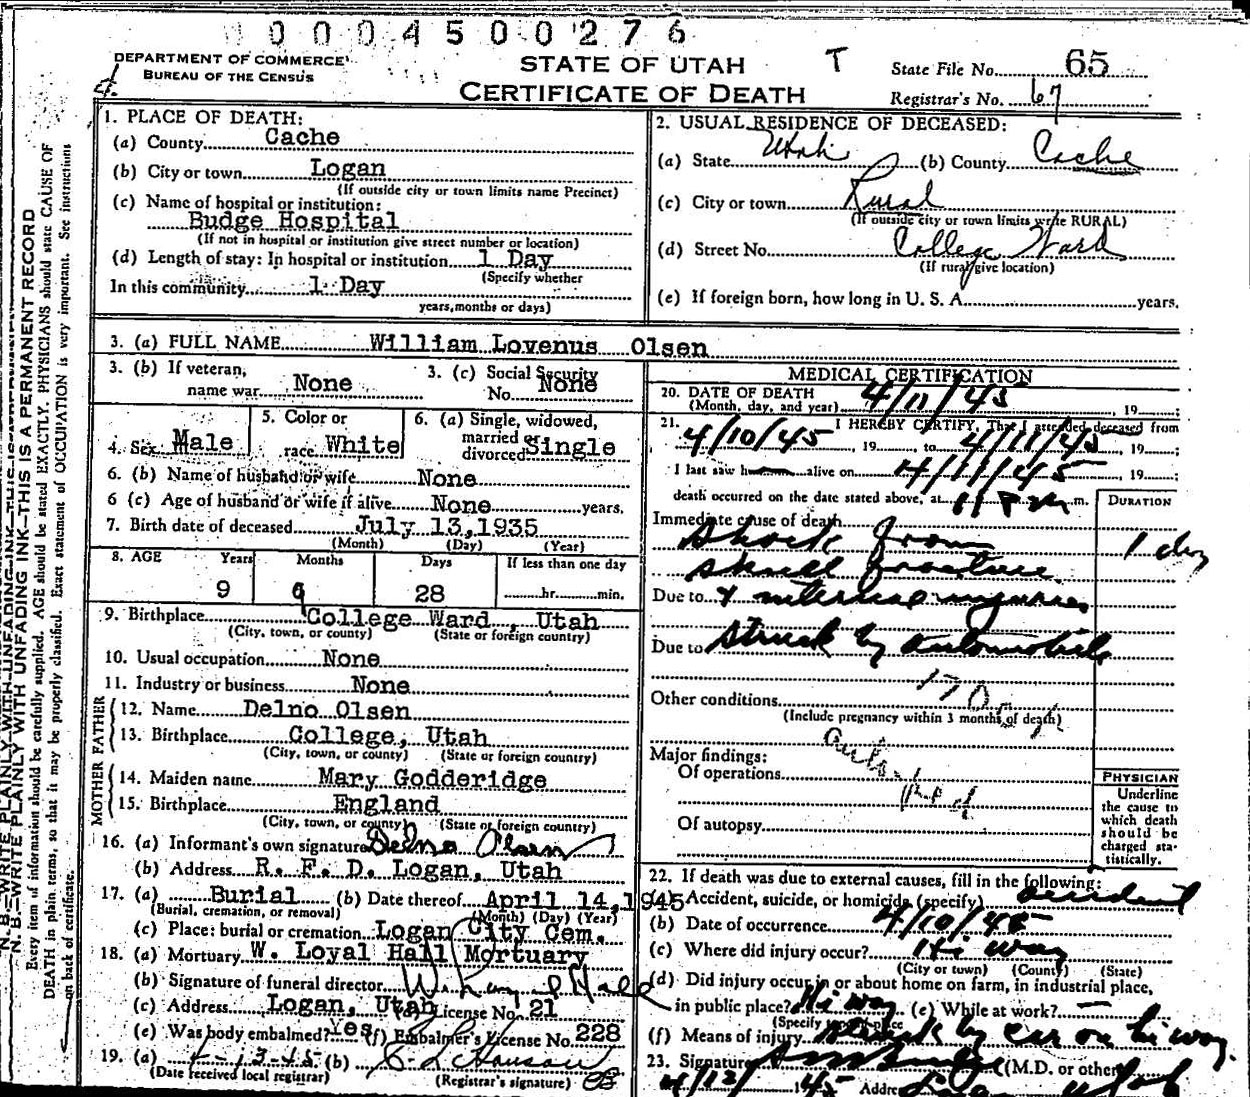 0 0 0 4 5 0 0 2 7 6
DEPARTMENT OF COMMERCE
BUREAU OF THE CENSUS
STATE OF UTAH
CERTIFICATE OF DEATH
T
State File No. 65
Registrar's No. 67
1. PLACE OF DEATH:
(a) County Cache
(b) City or town Logan
(If outside city or town limits name Precinct)
(c) Name of hospital or institution:
Budge Hospital
(If not in hospital or institution give street number or location)
(d) Length of stay: In hospital or institution 1 Day
(Specify whether
In this community 1 Day
years, months or days)
2. USUAL RESIDENCE OF DECEASED:
(a) State Utah (b) County Cache
(c) City or town Rural
(If outside city or town limits write RURAL)
(d) Street No. College Ward
(If rural give location)
(e) If foreign born, how long in U. S. A. years.
3. (a) FULL NAME William Lovenus Olsen
3. (b) If veteran, name war None
3. (c) Social Security No. None
4. Sex Male
5. Color or race White
6. (a) Single, widowed, married or divorced Single
6. (b) Name of husband or wife None
6 (c) Age of husband or wife if alive None years.
7. Birth date of deceased July 13, 1935
(Month) (Day) (Year)
8. AGE Years Months Days If less than one day
9 28 hr. min.
9. Birthplace College Ward, Utah
(City, town, or county) (State or foreign country)
10. Usual occupation None
11. Industry or business None
FATHER
12. Name Delno Olsen
13. Birthplace College, Utah
(City, town, or county) (State or foreign country)
MOTHER
14. Maiden name Mary Godderidge
15. Birthplace England
(City, town, or county) (State or foreign country)
16. (a) Informant's own signature Delno Olsen
(b) Address R. F. D. Logan, Utah
17. (a) Burial (b) Date thereof April 14, 1945
(Burial, cremation, or removal) (Month) (Day) (Year)
(c) Place: burial or cremation Logan City Cem.
18. (a) Mortuary W. Loyal Hall Mortuary
(b) Signature of funeral director W. Loyal Hall
(c) Address Logan, Utah (d) License No. 21
(e) Was body embalmed? Yes (f) Embalmer's License No. 228
19. (a) 4-13-45 (b)
(Date received local registrar) (Registrar's signature)
MEDICAL CERTIFICATION
20. DATE OF DEATH
(Month, day, and year) 4/11/45, 19
21. I HEREBY CERTIFY, That I attended deceased from
4/10/45, 19 to 4/11/45, 19
I last saw h alive on 4/11/45, 19
death occurred on the date stated above, at 11 P m m.
DURATION
Immediate cause of death
shock from 1 day
skull fracture
Due to & internal injuries
Due to struck by automobile
170
Other conditions
(Include pregnancy within 3 months of death)
Major findings:
Of operations
Of autopsy
PHYSICIAN
Underline the cause to which death should be charged statistically.
22. If death was due to external causes, fill in the following:
(a) Accident, suicide, or homicide (specify) accident
(b) Date of occurrence 4/10/45
(c) Where did injury occur? Hi way
(City or town) (County) (State)
(d) Did injury occur in or about home on farm, in industrial place,
in public place? Hi way (e) While at work?
(Specify type of place
(f) Means of injury struck by car on hi way.
23. Signature (M.D. or other)
4/12/ 1945 Addre Logan Utah
N. B.—WRITE PLAINLY WITH UNFADING INK—THIS IS A PERMANENT RECORD
Every item of information should be carefully supplied. AGE should be stated EXACTLY. PHYSICIANS should state CAUSE OF
DEATH in plain terms, so that it may be properly classified. Exact statement of OCCUPATION is very important. See instructions
on back of certificate.